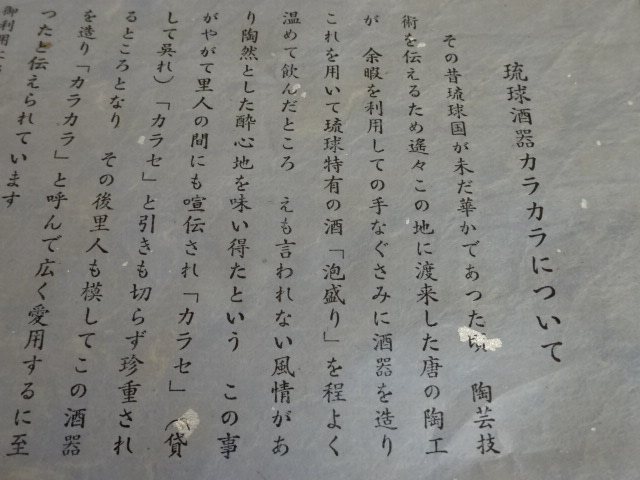 琉球酒器カラカラについて
その昔琉球国が未だ華かであった頃 陶芸技
術を伝えるため遙々この地に渡来した唐の陶工
が 余暇を利用しての手なぐさみに酒器を造り
これを用いて琉球特有の酒「泡盛り」を程よく
温めて飲んだところ えも言われない風情があ
り陶然とした酔心地を味い得たという この事
がやがて里人の間にも喧伝され「カラセ」（貸
して呉れ）「カラセ」と引きも切らず珍重され
るところとなり その後里人も模してこの酒器
を造り「カラカラ」と呼んで広く愛用するに至
ったと伝えられています
御利用